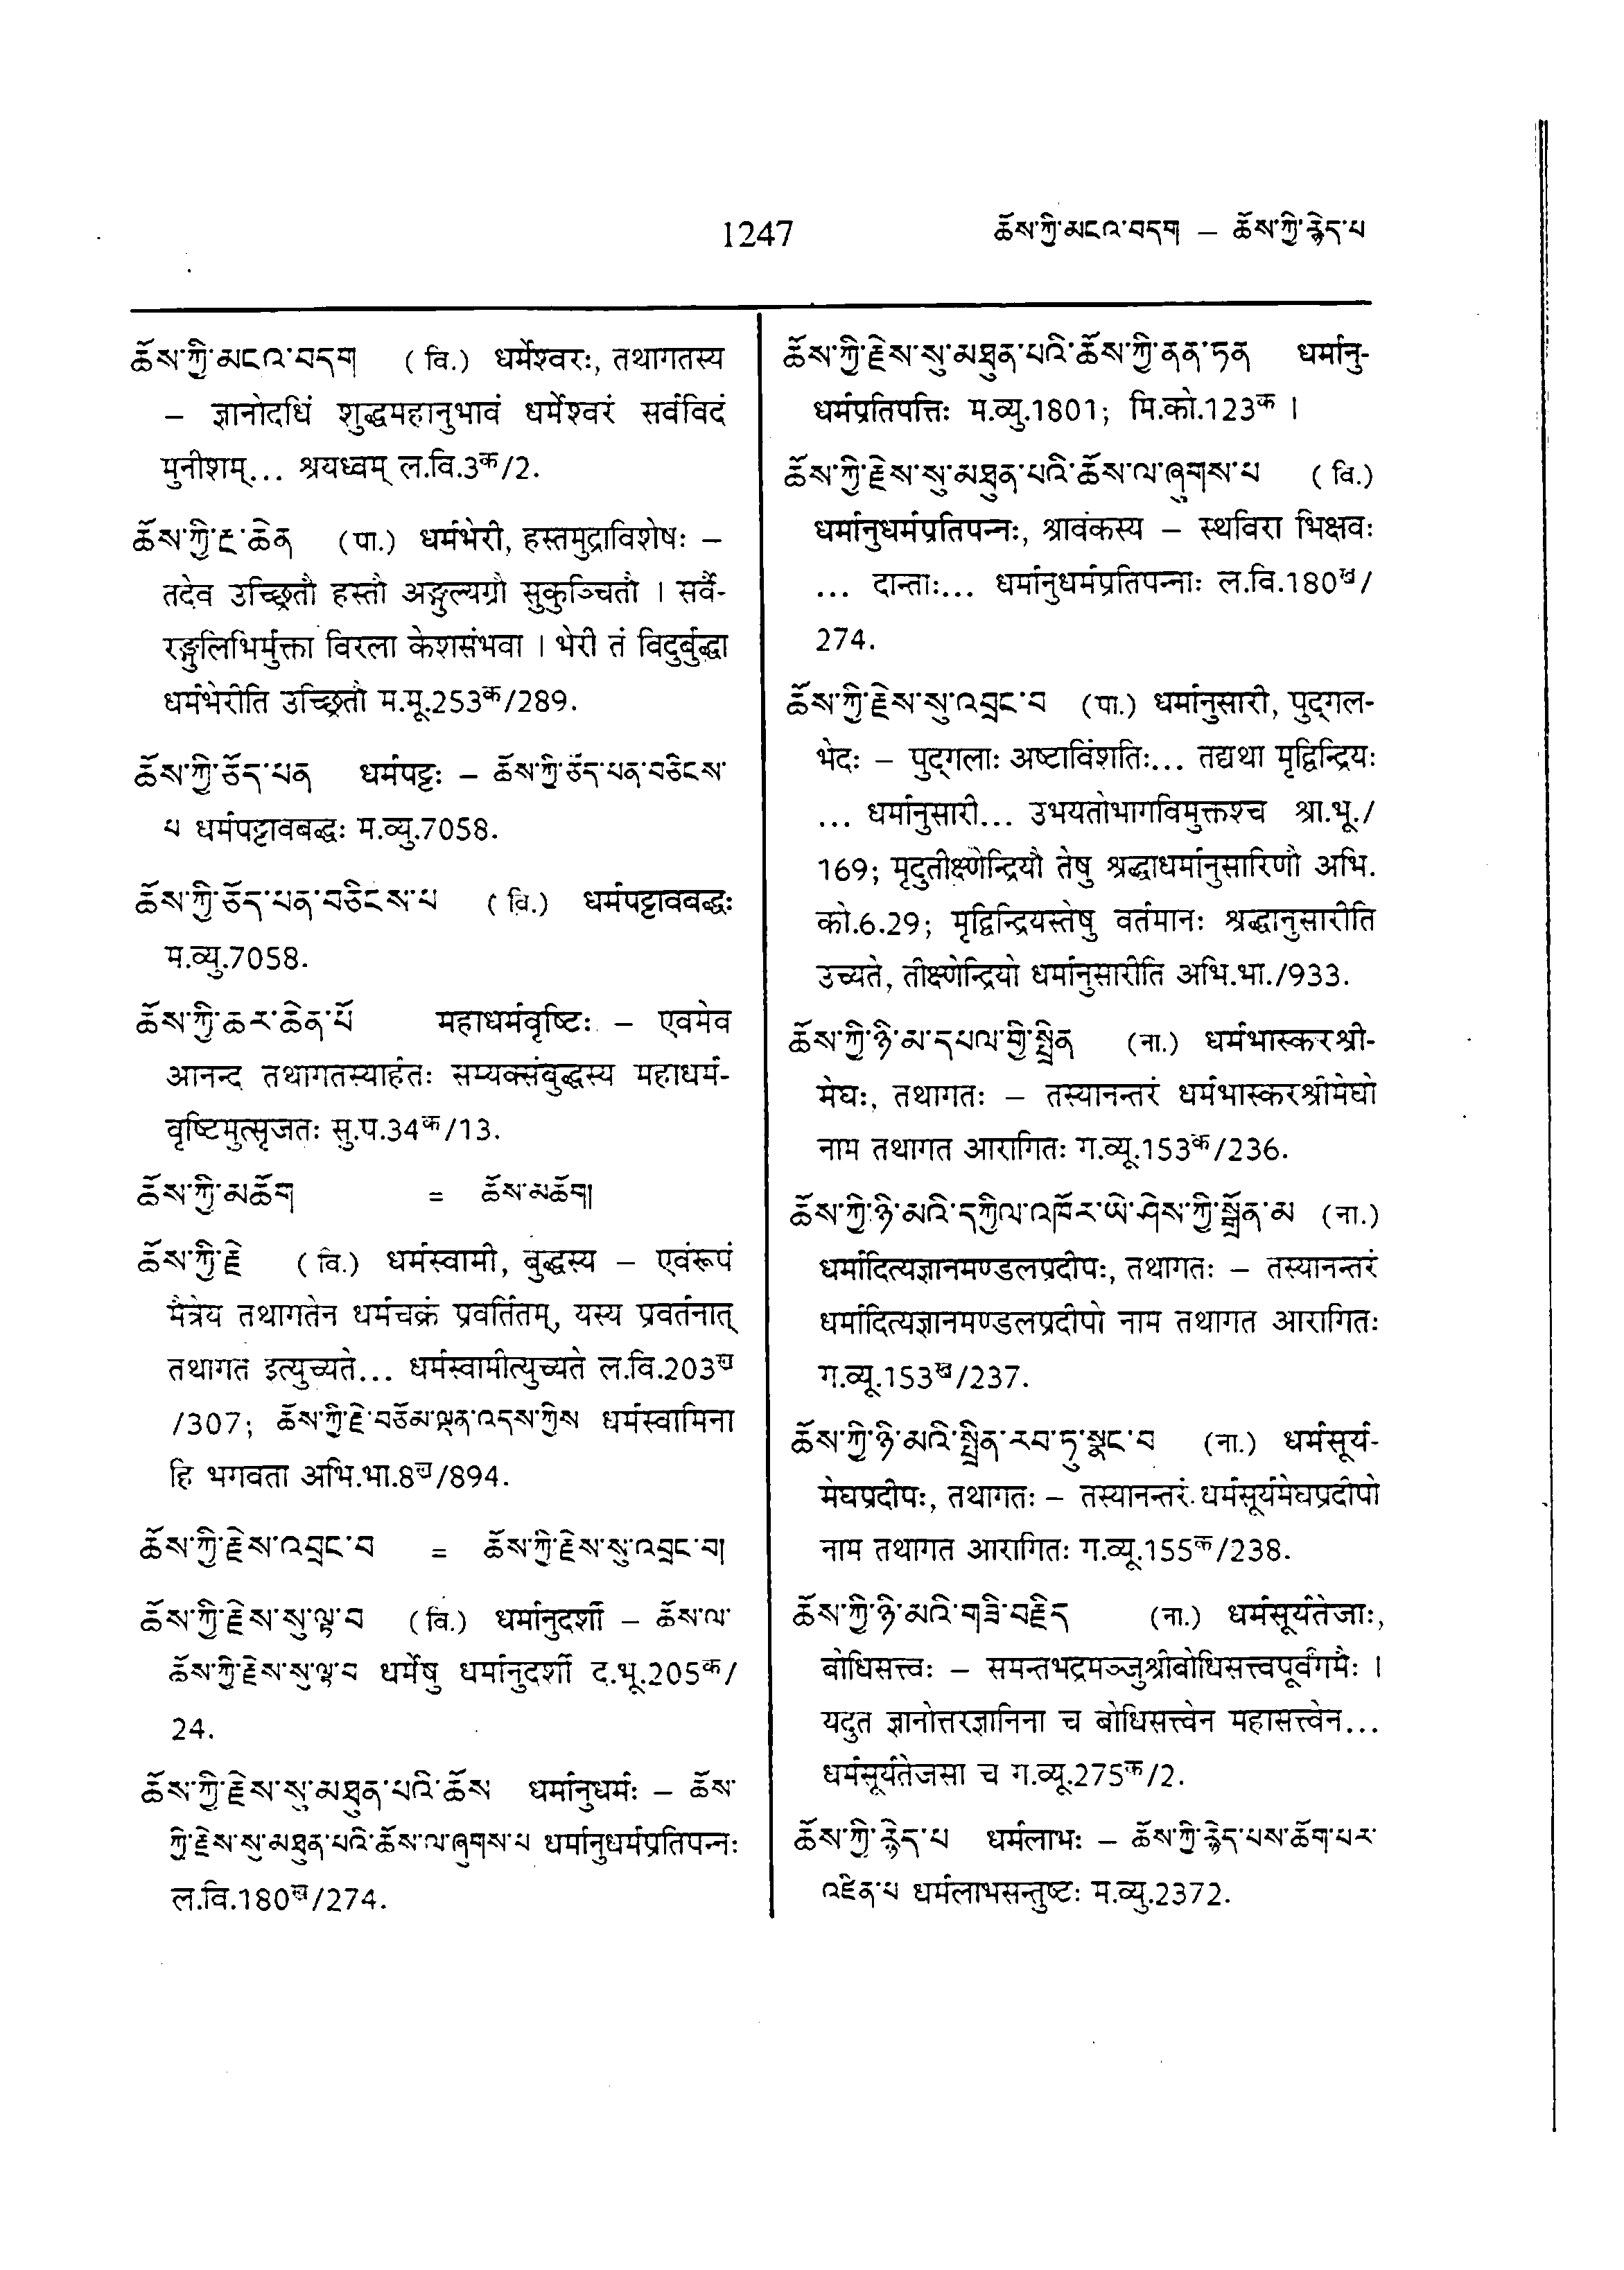 1247
ཆོས་ཀྱི་མངའ་བདག – ཆོས་ཀྱི་རྙེད་པ
ཆོས་ཀྱི་མངའ་བདག (वि.) धर्मेश्वरः, तथागतस्य
– ज्ञानोदधिं शुद्धमहानुभावं धर्मेश्वरं सर्वविदं
मुनीशम्... श्रयध्वम् ल.वि.3क/2.
ཆོས་ཀྱི་རྔ་ཆེན (पा.) धर्मभेरी, हस्तमुद्राविशेषः –
तदेव उच्छ्रितौ हस्तौ अङ्गुल्यग्रौ सुकुञ्चितौ । सर्वै-
रङ्गुलिभिर्मुक्ता विरला केशसंभवा । भेरी तं विदुर्बुद्धा
धर्मभेरीति उच्छ्रितौ म.मू.253क/289.
ཆོས་ཀྱི་ཅོད་པན धर्मपट्टः – ཆོས་ཀྱི་ཅོད་པན་བཅིངས་
པ धर्मपट्टावबद्धः म.व्यु.7058.
ཆོས་ཀྱི་ཅོད་པན་བཅིངས་པ (वि.) धर्मपट्टावबद्धः
म.व्यु.7058.
ཆོས་ཀྱི་ཆར་ཆེན་པོ महाधर्मवृष्टिः – एवमेव
आनन्द तथागतस्यार्हतः सम्यक्संबुद्धस्य महाधर्म-
वृष्टिमुत्सृजतः सु.प.34क/13.
ཆོས་ཀྱི་མཆོག = ཆོས་མཆོག།
ཆོས་ཀྱི་རྗེ (वि.) धर्मस्वामी, बुद्धस्य – एवंरूपं
मैत्रेय तथागतेन धर्मचक्रं प्रवर्तितम्, यस्य प्रवर्तनात्
तथागत इत्युच्यते... धर्मस्वामीत्युच्यते ल.वि.203ख
/307; ཆོས་ཀྱི་རྗེ་བཅོམ་ལྡན་འདས་ཀྱིས धर्मस्वामिना
हि भगवता अभि.भा.8ख/894.
ཆོས་ཀྱི་རྗེས་འབྲང་བ = ཆོས་ཀྱི་རྗེས་སུ་འབྲང་བ།
ཆོས་ཀྱི་རྗེས་སུ་ལྟ་བ (वि.) धर्मानुदर्शी – ཆོས་ལ་
ཆོས་ཀྱི་རྗེས་སུ་ལྟ་བ धर्मेषु धर्मानुदर्शी द.भू.205क/
24.
ཆོས་ཀྱི་རྗེས་སུ་མཐུན་པའི་ཆོས धर्मानुधर्मः – ཆོས་
ཀྱི་རྗེས་སུ་མཐུན་པའི་ཆོས་ལ་ཞུགས་པ धर्मानुधर्मप्रतिपन्नः
ल.वि.180ख/274.
ཆོས་ཀྱི་རྗེས་སུ་མཐུན་པའི་ཆོས་ཀྱི་ནན་ཏན धर्मानु-
धर्मप्रतिपत्तिः म.व्यु.1801; मि.को.123क ।
ཆོས་ཀྱི་རྗེས་སུ་མཐུན་པའི་ཆོས་ལ་ཞུགས་པ (वि.)
धर्मानुधर्मप्रतिपन्नः, श्रावकस्य – स्थविरा भिक्षवः
... दान्ताः... धर्मानुधर्मप्रतिपन्नाः ल.वि.180ख/
274.
ཆོས་ཀྱི་རྗེས་སུ་འབྲང་བ (पा.) धर्मानुसारी, पुद्गल-
भेदः – पुद्गलाः अष्टाविंशतिः... तद्यथा मृद्विन्द्रियः
... धर्मानुसारी... उभयतोभागविमुक्तश्च श्रा.भू./
169; मृदुतीक्ष्णेन्द्रियौ तेषु श्रद्धाधर्मानुसारिणौ अभि.
को.6.29; मृद्विन्द्रियस्तेषु वर्तमानः श्रद्धानुसारीति
उच्यते, तीक्ष्णेन्द्रियो धर्मानुसारीति अभि.भा./933.
ཆོས་ཀྱི་ཉི་མ་དཔལ་གྱི་སྤྲིན (ना.) धर्मभास्करश्री-
मेघः, तथागतः – तस्यानन्तरं धर्मभास्करश्रीमेघो
नाम तथागत आरागितः ग.व्यू.153क/236.
ཆོས་ཀྱི་ཉི་མའི་དཀྱིལ་འཁོར་ཡེ་ཤེས་ཀྱི་སྒྲོན་མ (ना.)
धर्मादित्यज्ञानमण्डलप्रदीपः, तथागतः – तस्यानन्तरं
धर्मादित्यज्ञानमण्डलप्रदीपो नाम तथागत आरागितः
ग.व्यू.153ख/237.
ཆོས་ཀྱི་ཉི་མའི་སྤྲིན་རབ་ཏུ་སྣང་བ (ना.) धर्मसूर्य-
मेघप्रदीपः, तथागतः – तस्यानन्तरं धर्मसूर्यमेघप्रदीपो
नाम तथागत आरागितः ग.व्यू.155क/238.
ཆོས་ཀྱི་ཉི་མའི་གཟི་བརྗིད (ना.) धर्मसूर्यतेजाः,
बोधिसत्त्वः – समन्तभद्रमञ्जुश्रीबोधिसत्त्वपूर्वंगमैः ।
यदुत ज्ञानोत्तरज्ञानिना च बोधिसत्त्वेन महासत्त्वेन...
धर्मसूर्यतेजसा च ग.व्यू.275क/2.
ཆོས་ཀྱི་རྙེད་པ धर्मलाभः – ཆོས་ཀྱི་རྙེད་པས་ཆོག་པར་
འཛིན་པ धर्मलाभसन्तुष्टः म.व्यु.2372.